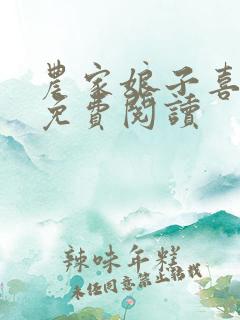 農家娘子喜
免費閱讀
辣味年糕
未经同意禁止转载